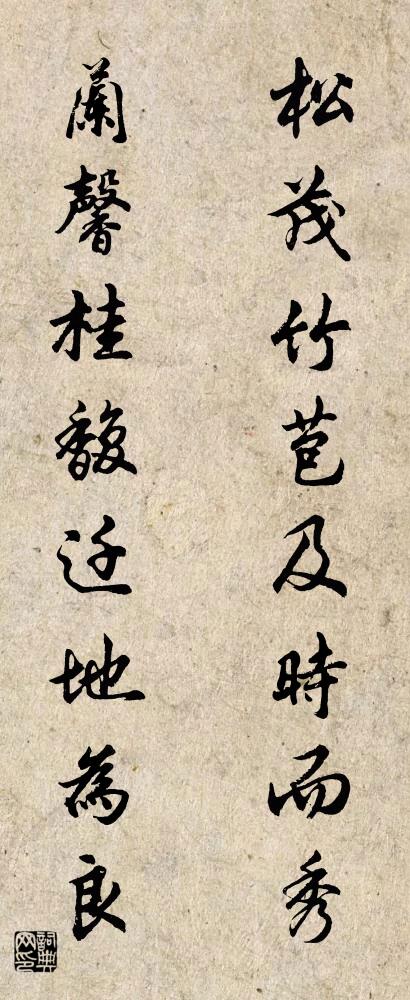 松茂竹苞及時而秀
蘭馨桂馥迁地為良
詞典网印